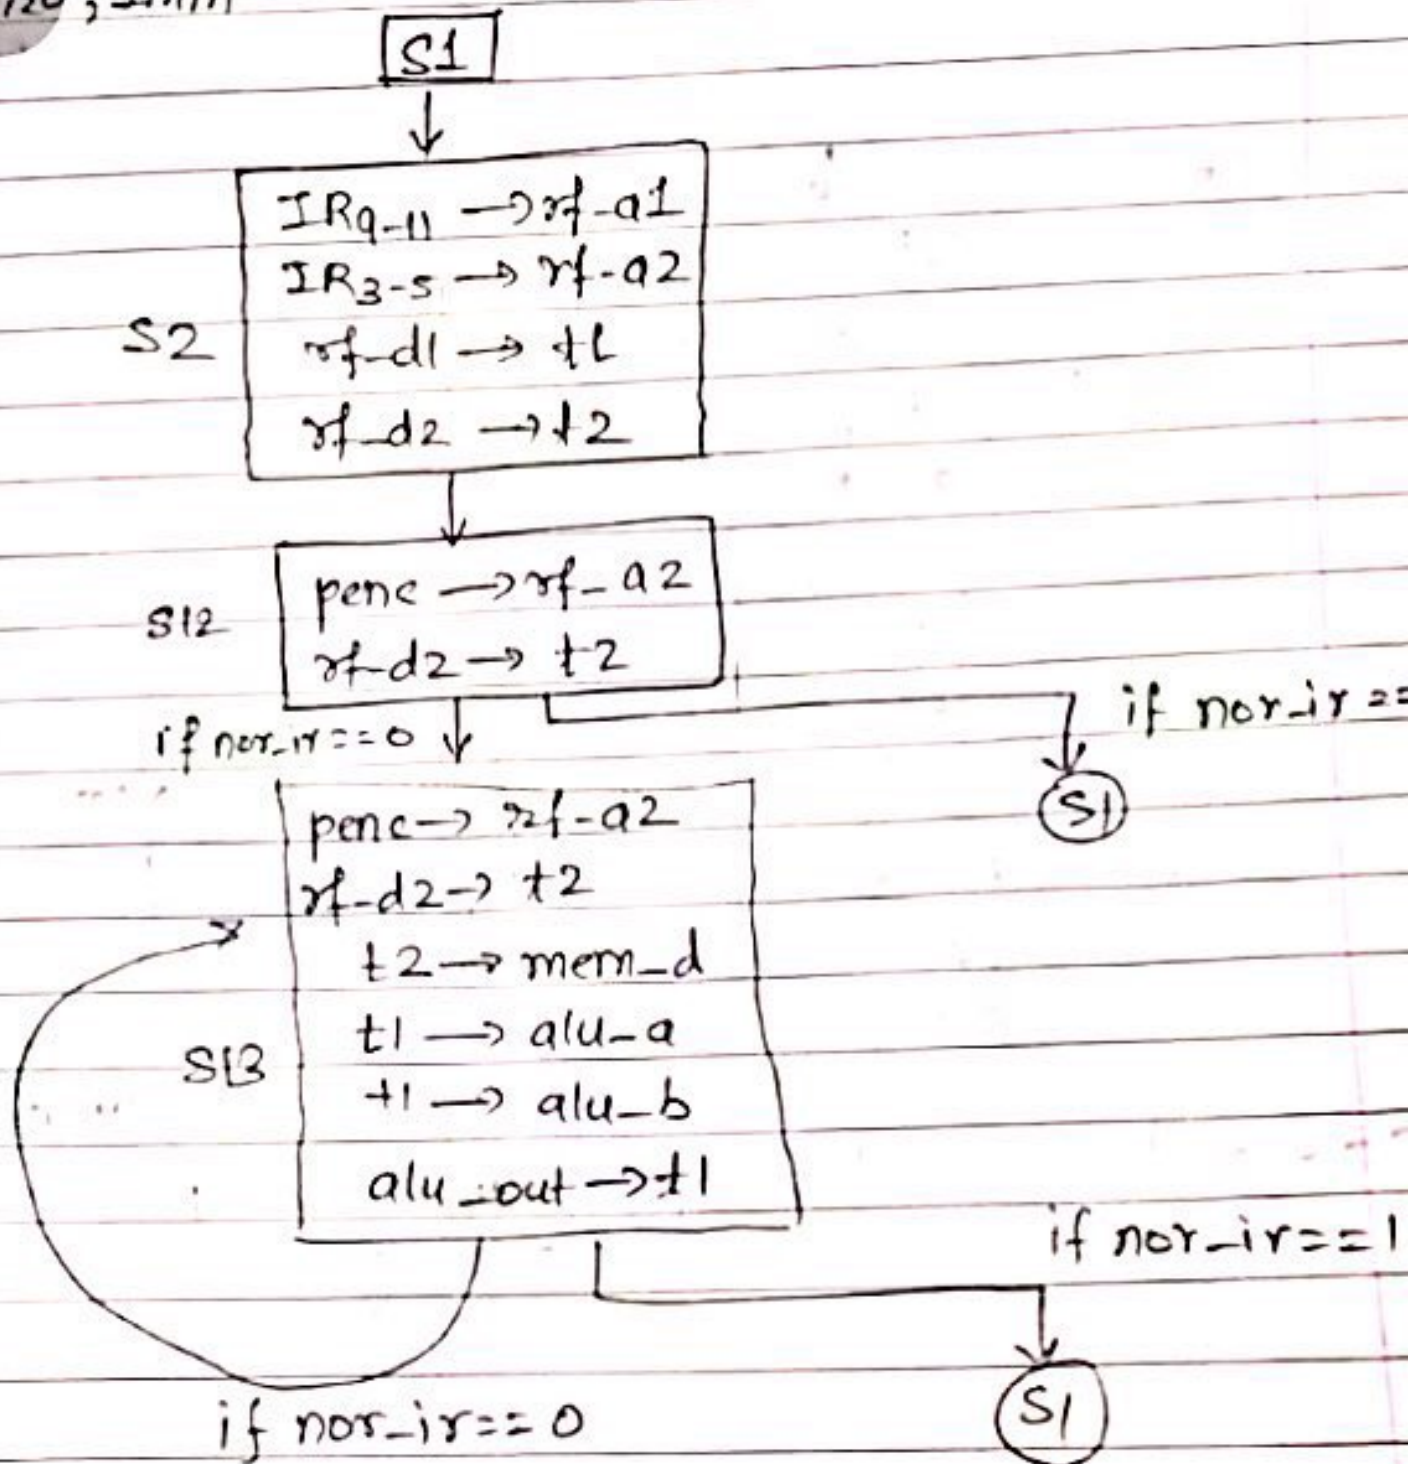 S1
IR9-11 → rf-a1
IR3-5 → rf-a2
S2
rf-d1 → t1
rf-d2 → t2
penc → rf-a2
S12
rf-d2 → t2
if nor-ir ==
if nor-ir==0
S1
penc → rf-a2
rf-d2 → t2
t2 → mem-d
t1 → alu-a
S13
t1 → alu-b
alu-out → t1
if nor-ir==1
S1
if nor-ir==0